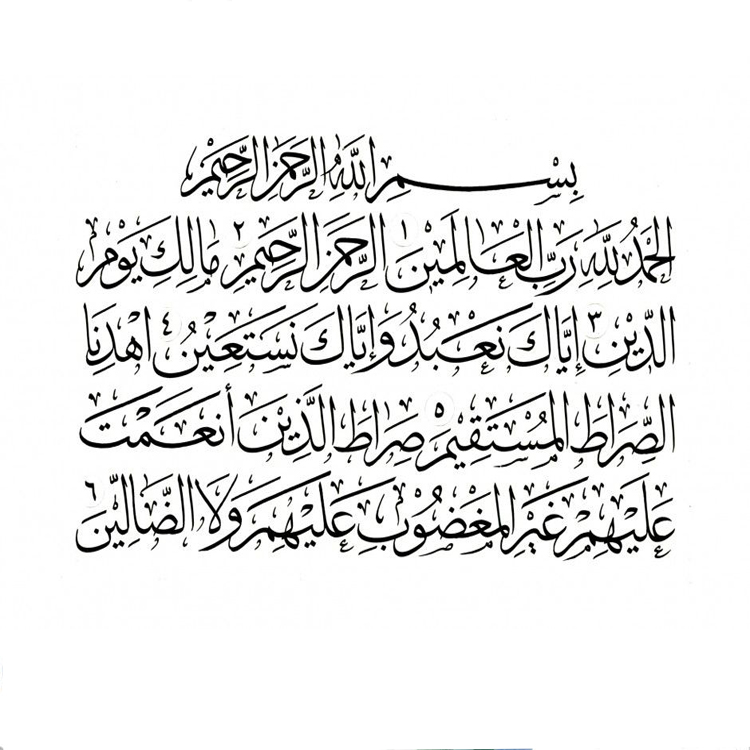 بِسْمِ اللَّهِ الرَّحْمَنِ الرَّحِيمِ
الْحَمْدُ لِلَّهِ رَبِّ الْعَالَمِينَ ١ الرَّحْمَنِ الرَّحِيمِ ٢ مَالِكِ يَوْمِ
الدِّينِ ٣ إِيَّاكَ نَعْبُدُ وَإِيَّاكَ نَسْتَعِينُ ٤ اهْدِنَا
الصِّرَاطَ الْمُسْتَقِيمَ ٥ صِرَاطَ الَّذِينَ أَنْعَمْتَ
عَلَيْهِمْ غَيْرِ الْمَغْضُوبِ عَلَيْهِمْ وَلَا الضَّالِّينَ ٦